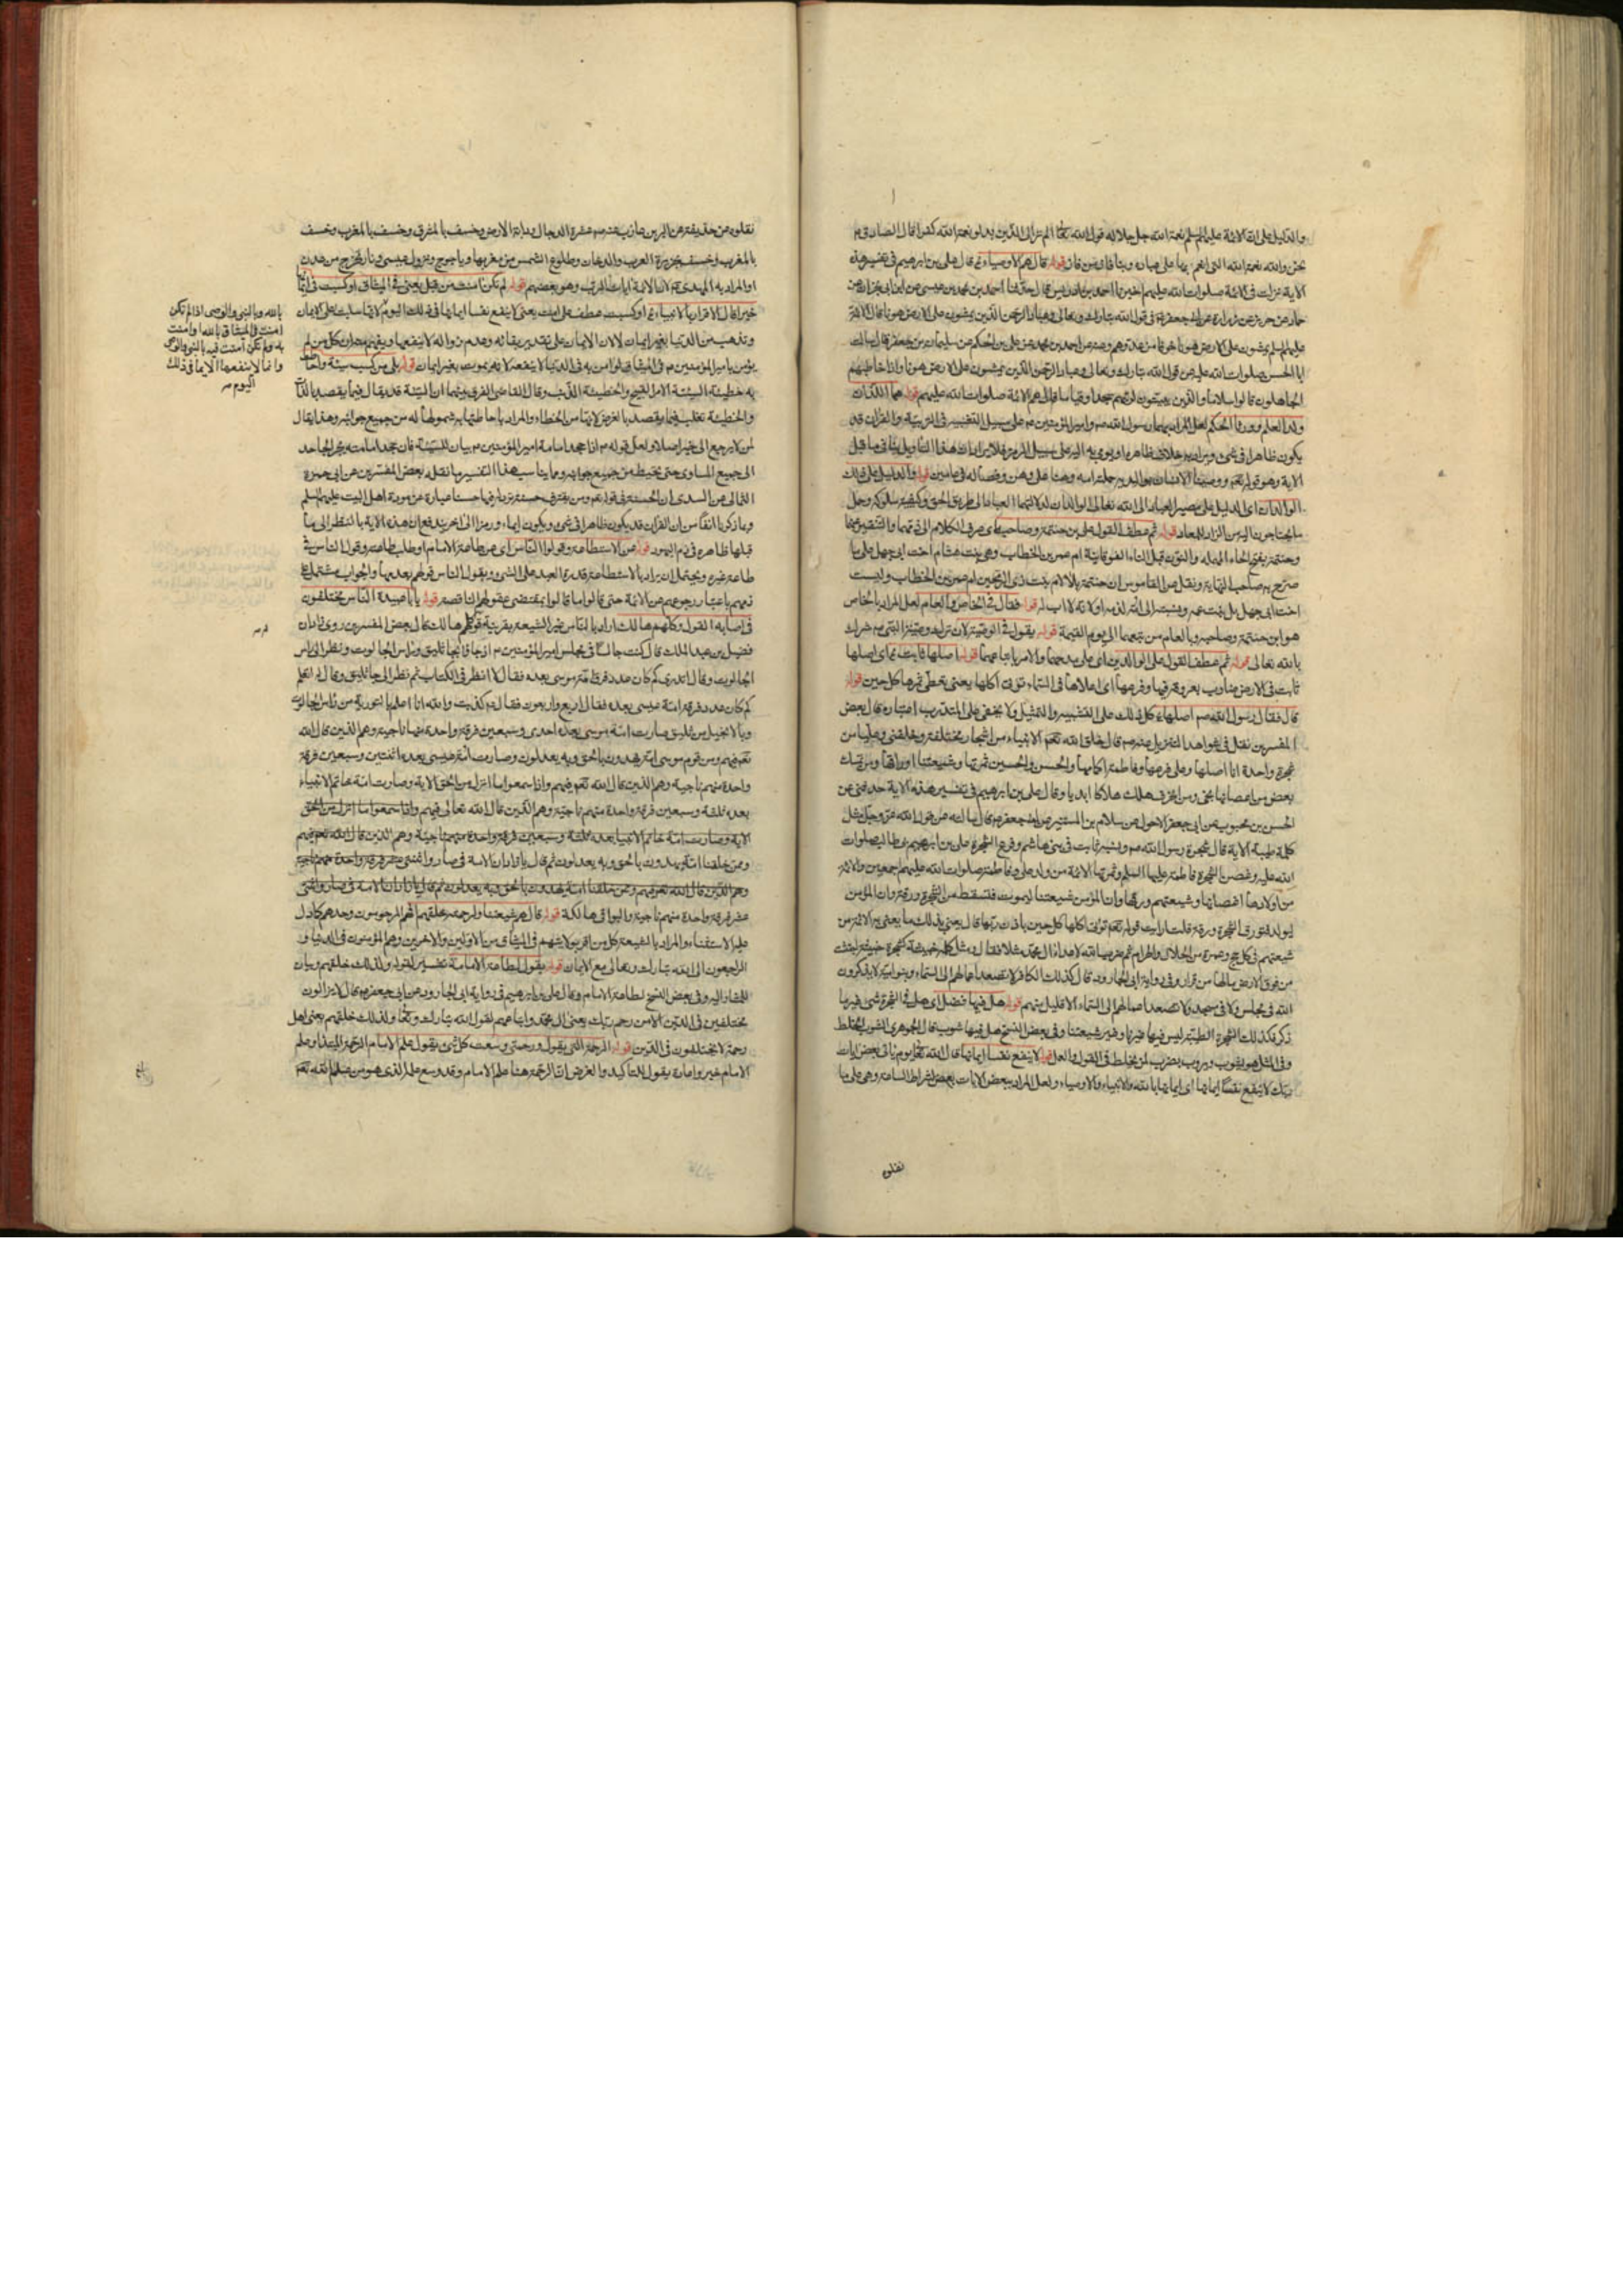 والدليل على ان الائمة عليهم السلم نعمة الله جل جلاله قول الله تع الم تر الى الذين بدلوا نعمة الله كفرا قال الصادق ع
نحن والله نعمة الله التى انعم بها على عباده وبنا فاز من فاز قوله قال هم الاوصياء ع قال على بن ابرهيم فى تفسيره هذه
الاية نزلت فى الائمة صلوات الله عليهم اخبرنا احمد بن ادريس قال حدثنا احمد بن محمد بن عيسى عن ابن ابى نجران عن
حماد عن حريز عن زرارة عن ابى جعفر ع فى قول الله تبارك وتعالى وعباد الرحمن الذين يمشون على الارض هونا قال الائمة
عليهم السلم يمشون على الارض هونا خوفا من عدوهم وعنه عن احمد بن محمد عن على بن الحكم عن سليمان بن جعفر قال سالت
ابا الحسن صلوات الله عليه عن قول الله تبارك وتعالى وعباد الرحمن الذين يمشون على الارض هونا واذا خاطبهم
الجاهلون قالوا سلاما والذين يبيتون لربهم سجدا وقياما قال هم الائمة صلوات الله عليهم قوله هما اللذان
ولدا العلم وورثا الحكم لعل المراد بهما رسول الله ص وامير المؤمنين ع على سبيل التفسير فى والقران قد
يكون ظاهرا فى شىء ويراد به خلاف ظاهره او يومى به اليه على سبيل الرمز فلا يرد ان هذا التاويل ينافى ما قبل
الاية وهو قوله تعم ووصينا الانسان بوالديه حملته امه وهنا على وهن وفصاله فى عامين قوله والدليل على ذلك
الوالدان اى الدليل على مصير العباد الى الله تعالى الوالدان لدلالتهما العباد الى طريق الحق وكيفية سلوكه وحمل
ما يحتاجون اليه من الزاد للمعاد قوله ثم عطف القول على ابن حنتمة وصاحبه اى صرف الكلام الى ذمهما والتنفير عنهما
وحنتمة بفتح الحاء المهملة والنون قبل التاء الفوقانية ام عمر بن الخطاب وهى بنت هشام اخت ابى جهل على ما
صرح به صاحب النهاية ونقل عن القاموس ان حنتمة بلا لام بنت ذى الرمحين ام عمر بن الخطاب وليست
اخت ابى جهل بل بنت عمه ونسبته الى امه لذمه او لانه لا اب له قوله فقال فى الخاص والعام لعل المراد بالخاص
هو ابن حنتمة وصاحبه وبالعام من تبعهما الى يوم القيمة قوله يقول فى الوصية لان ترك وصية النبى ص شرك
بالله تعالى قوله ثم عطف القول على الوالدين اى على مدحهما والامر باتباعهما قوله اصلها ثابت ع اى اصلها
ثابت فى الارض ضارب بعروقه فيها وفرعها اى اعلاها فى السماء تؤتى اكلها يعنى تعطى ثمرها كل حين قوله
قال فقال رسول الله ص اصلها ع كل ذلك على التشبيه والتمثيل ولا يخفى على المتدرب اعتباره قال بعض
المفسرين نقل فى شواهد التنزيل عنه ص قال خلق الله تعم الانبياء من اشجار مختلفة وخلقنى وعليا من
شجرة واحدة انا اصلها وعلى فرعها وفاطمة اكمامها والحسن والحسين ثمرتها وشيعتنا اوراقها ومن تمسك
بغصن من اغصانها نجى ومن انحرف هلك هلاكا ابديا وقال على بن ابرهيم فى تفسير هذه الاية حدثنى عن
الحسن بن محبوب عن ابى جعفر الاحول عن سلام بن المستنير عن ابى جعفر ع قال سالته عن قول الله عز وجل مثل
كلمة طيبة الاية قال الشجرة رسول الله ص ونسبه ثابت فى بنى هاشم وفرع الشجرة على بن ابى طالب صلوات
الله عليه وغصن الشجرة فاطمة عليها السلم وثمرتها الائمة من ولد على وفاطمة صلوات الله عليهم اجمعين والائمة
من اولادها اغصانها وشيعتهم ورقها وان المؤمن من شيعتنا ليموت فتسقط من الشجرة ورقة وان المؤمن
ليولد فتورق الشجرة ورقة قلت ارايت قوله تعم تؤتى اكلها كل حين باذن ربها قال يعنى بذلك ما يفتى به الائمة من
شيعتهم فى كل حج وعمرة من الحلال والحرام ثم ضرب الله لاعداء ال محمد مثلا فقال ومثل كلمة خبيثة كشجرة خبيثة اجتثت
من فوق الارض مالها من قرار وفى رواية ابى الجارود قال كذلك الكافر لا تصعد اعمالهم الى السماء وبنو امية لا يذكرون
الله فى مجلس ولا فى مسجد ولا تصعد اعمالهم الى السماء الا قليل منهم قوله هل فيها فضل اى هل فى الشجرة شىء غير ما
ذكر فكذلك الشجرة الطيبة ليس فيها غيرنا وغير شيعتنا وفى بعض النسخ هل فيها شوب قال الجوهرى الشوب الخلط
وفى المثل هو يشوب ويروب يضرب لمن يخلط فى القول والعمل قوله لا ينفع نفسا ايمانها قال الله تع يوم ياتى بعض ايات
ربك لا ينفع نفسا ايمانها اى ايمانها بالله والانبياء والاوصياء ولعل المراد ببعض الايات بعض اشراط الساعة وهى على ما
نقلوه
نقلوه عن حذيفة عن البرين عازب عنه ص عشرة الدجال ودابة الارض وخسف بالمشرق وخسف بالمغرب وخسف
بالمغرب وخسف بجزيرة العرب والدخان وطلوع الشمس من مغربها وياجوج ونزول عيسى ونار تخرج من عدن
او المراد به المهدى ع لان الائمة ايات الرب وهو بعضهم قوله لم تكن امنت من قبل يعنى فى الميثاق او كسبت فى ايمانها
خيرا قال الاقرار بالانبياء ع او كسبت عطف على امنت يعنى لا ينفع نفسا ايمانها فى ذلك اليوم لانها سلبت على الايمان
وتذهب من الدنيا بغير ايمان لان الايمان على تقدير بقائه وعدم زواله لا ينفعها ويفهم منه ان كل من لم
يؤمن بامير المؤمنين ع فى الميثاق لو امن به فى الدنيا لا ينفعه لانه يموت بغير ايمان قوله بلى من كسب سيئة واحاطت
به خطيئة السيئة الامر القبيح والخطيئة الذنب وقال القاضى الفرق بينهما ان السيئة قد يقال فيما يقصد بالذات
والخطيئة تغلب فيما يقصد بالعرض لانها من الخطاء والمراد باحاطتها به شمولها له من جميع جوانبه وهذا يقال
لمن لا يرجع الى خير اصلا ولعل قوله ع اذا جحد امامة امير المؤمنين ع بيان للسيئة فان جحد امامته يجر الجاحد
الى جميع المساوى حتى تحيط به من جميع جوانبه ومما يناسب هذا التفسير ما نقله بعض المفسرين عن ابى حمزة
الثمالى عن السدى ان الحسنة فى قوله تعم ومن يقترف حسنة نزد له فيها حسنا عبارة عن مودة اهل البيت عليهم السلم
وبما ذكرنا انفا من ان القران قد يكون ظاهرا فى شىء ويكون ايماء ورمزا الى اخر يندفع ان هذه الاية بالنظر الى ما
قبلها ظاهرة فى ذم اليهود قوله عن الاستطاعة وقول الناس اى عن طاعة الامام او طلب طاعته وقول الناس فى
طاعة غيره ويحتمل ان يراد بالاستطاعة قدرة العبد على الشىء وبقول الناس قولهم بعدمها والجواب مشتمل على
ذمهم باعتبار رجوعهم عن الائمة حتى قالوا ما قالوا بمقتضى عقولهم الناقصة قوله يا با عبيدة الناس مختلفون
فى اصابة القول وكلهم هالك اراد بالناس غير الشيعة بقرينة قوله كلهم هالك قال بعض المفسرين روى زاذان
فضيل بن عبد الملك قال كنت جالسا فى مجلس امير المؤمنين ع اذ جا قائما جاثليق وراس الجالوت ونظر الى راس
الجالوت وقال اتدرى كم كان عدد فرقة امة موسى بعده فقال لا انظر فى الكتاب ثم نظر الى جاثليق وقال له اتعلم
كم كان عدد فرقة امة عيسى بعده فقال اربع واربعون فقال ع كذبت والله انا اعلم بالتورية من راس الجالوت
وبالانجيل من جاثليق صارت امة موسى بعده احدى وسبعين فرقة واحدة منها ناجية وهم الذين قال الله
تعم فيهم ومن قوم موسى امة يهدون بالحق وبه يعدلون وصارت امة عيسى بعده اثنتين وسبعين فرقة
واحدة منهم ناجية وهم الذين قال الله تعم فيهم واذا سمعوا ما انزل من الحق الاية وصارت امة خاتم الانبياء
بعده ثلثة وسبعين فرقة واحدة منهم ناجية وهم الذين قال الله تعالى فيهم واذا سمعوا ما انزل من الحق
الاية وصارت امة خاتم الانبيا بعده ثلثة وسبعين فرقة واحدة منهم ناجية وهم الذين قال الله تعم فيهم
وممن خلقنا امة يهدون بالحق وبه يعدلون ثم قال يا زاذان الامة فى صاروا اثنتى عشر فرقة واحدة منهم ناجية
وهم الذين قال الله تعم فيهم وممن خلقنا امة يهدون بالحق وبه يعدلون ثم قال يا زاذان الامة فى صاروا اثنى
عشر فرقة واحدة منهم ناجية والبواقى هالكة قوله قال هم شيعتنا ولرحمته خلقهم اى هم المرحومون وحدهم كما دل
عليه الاستثناء والمراد بالشيعة كل من اقر بولايتهم فى الميثاق من الاولين والاخرين وهم المؤمنون فى الدنيا و
الراجعون الى الله تبارك وتعالى مع الايمان قوله يقول لطاعة الامامة تفسير لقوله ولذلك خلقهم وبيان
للمشار اليه وفى بعض النسخ لطاعة الامام وقال على بن ابرهيم فى رواية ابى الجارود عن ابى جعفر ع قال لا يزالون
مختلفين فى الدين الا من رحم ربك يعنى ال محمد واتباعهم لقول الله تبارك وتعالى ولذلك خلقهم يعنى اهل
رحمة لا يختلفون فى الدين قوله الرحمة التى يقول ورحمتى وسعت كل شىء يقول علم الامام الرحمة المبتدا وعلم
الامام خبر واعادة يقول للتاكيد والغرض ان الرحمة هنا علم الامام وقد وسع علمه الذى هو من علم الله تعم
بالله وبالنبى والوصى اذا لم تكن
امنت فى الميثاق بالله او امنت
به ولم تكن امنت فيه بالنبى والوصى
وانما لا ينفعها الايمان فى ذلك
اليوم